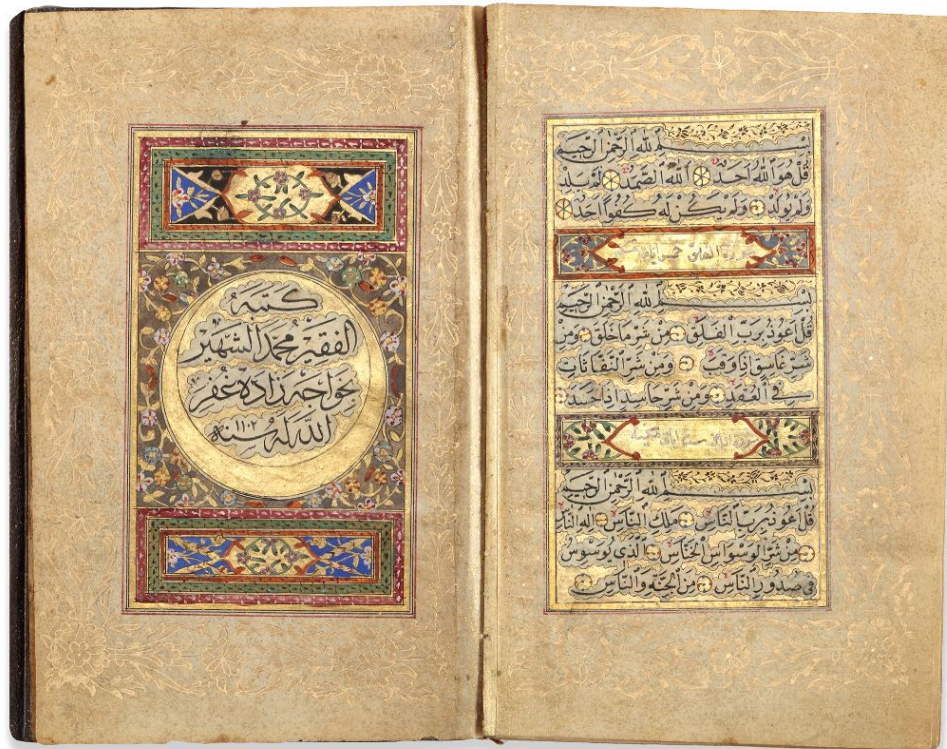 بِسْمِ اللّٰهِ الرَّحْمٰنِ الرَّحِيْمِ
قُلْ هُوَ اللّٰهُ اَحَدٌ اَللّٰهُ الصَّمَدُ لَمْ يَلِدْ
وَلَمْ يُولَدْ وَلَمْ يَكُنْ لَهُ كُفُوًا اَحَدٌ
سورة الفلق خمس ايات
بِسْمِ اللّٰهِ الرَّحْمٰنِ الرَّحِيْمِ
قُلْ اَعُوذُ بِرَبِّ الْفَلَقِ مِنْ شَرِّ مَا خَلَقَ وَمِنْ
شَرِّ غَاسِقٍ اِذَا وَقَبَ وَمِنْ شَرِّ النَّفَّاثَاتِ
فِي الْعُقَدِ وَمِنْ شَرِّ حَاسِدٍ اِذَا حَسَدَ
سورة الناس ست ايات
بِسْمِ اللّٰهِ الرَّحْمٰنِ الرَّحِيْمِ
قُلْ اَعُوذُ بِرَبِّ النَّاسِ مَلِكِ النَّاسِ اِلٰهِ النَّاسِ
مِنْ شَرِّ الْوَسْوَاسِ الْخَنَّاسِ الَّذِي يُوَسْوِسُ
فِي صُدُورِ النَّاسِ مِنَ الْجِنَّةِ وَالنَّاسِ
كَتَبَهُ
الفَقِيرُ مُحَمَّد الشَّهِير
بِخَواجَه زَادَه غَفَرَ
اللّٰه لَهُ سنه ١١٠٢